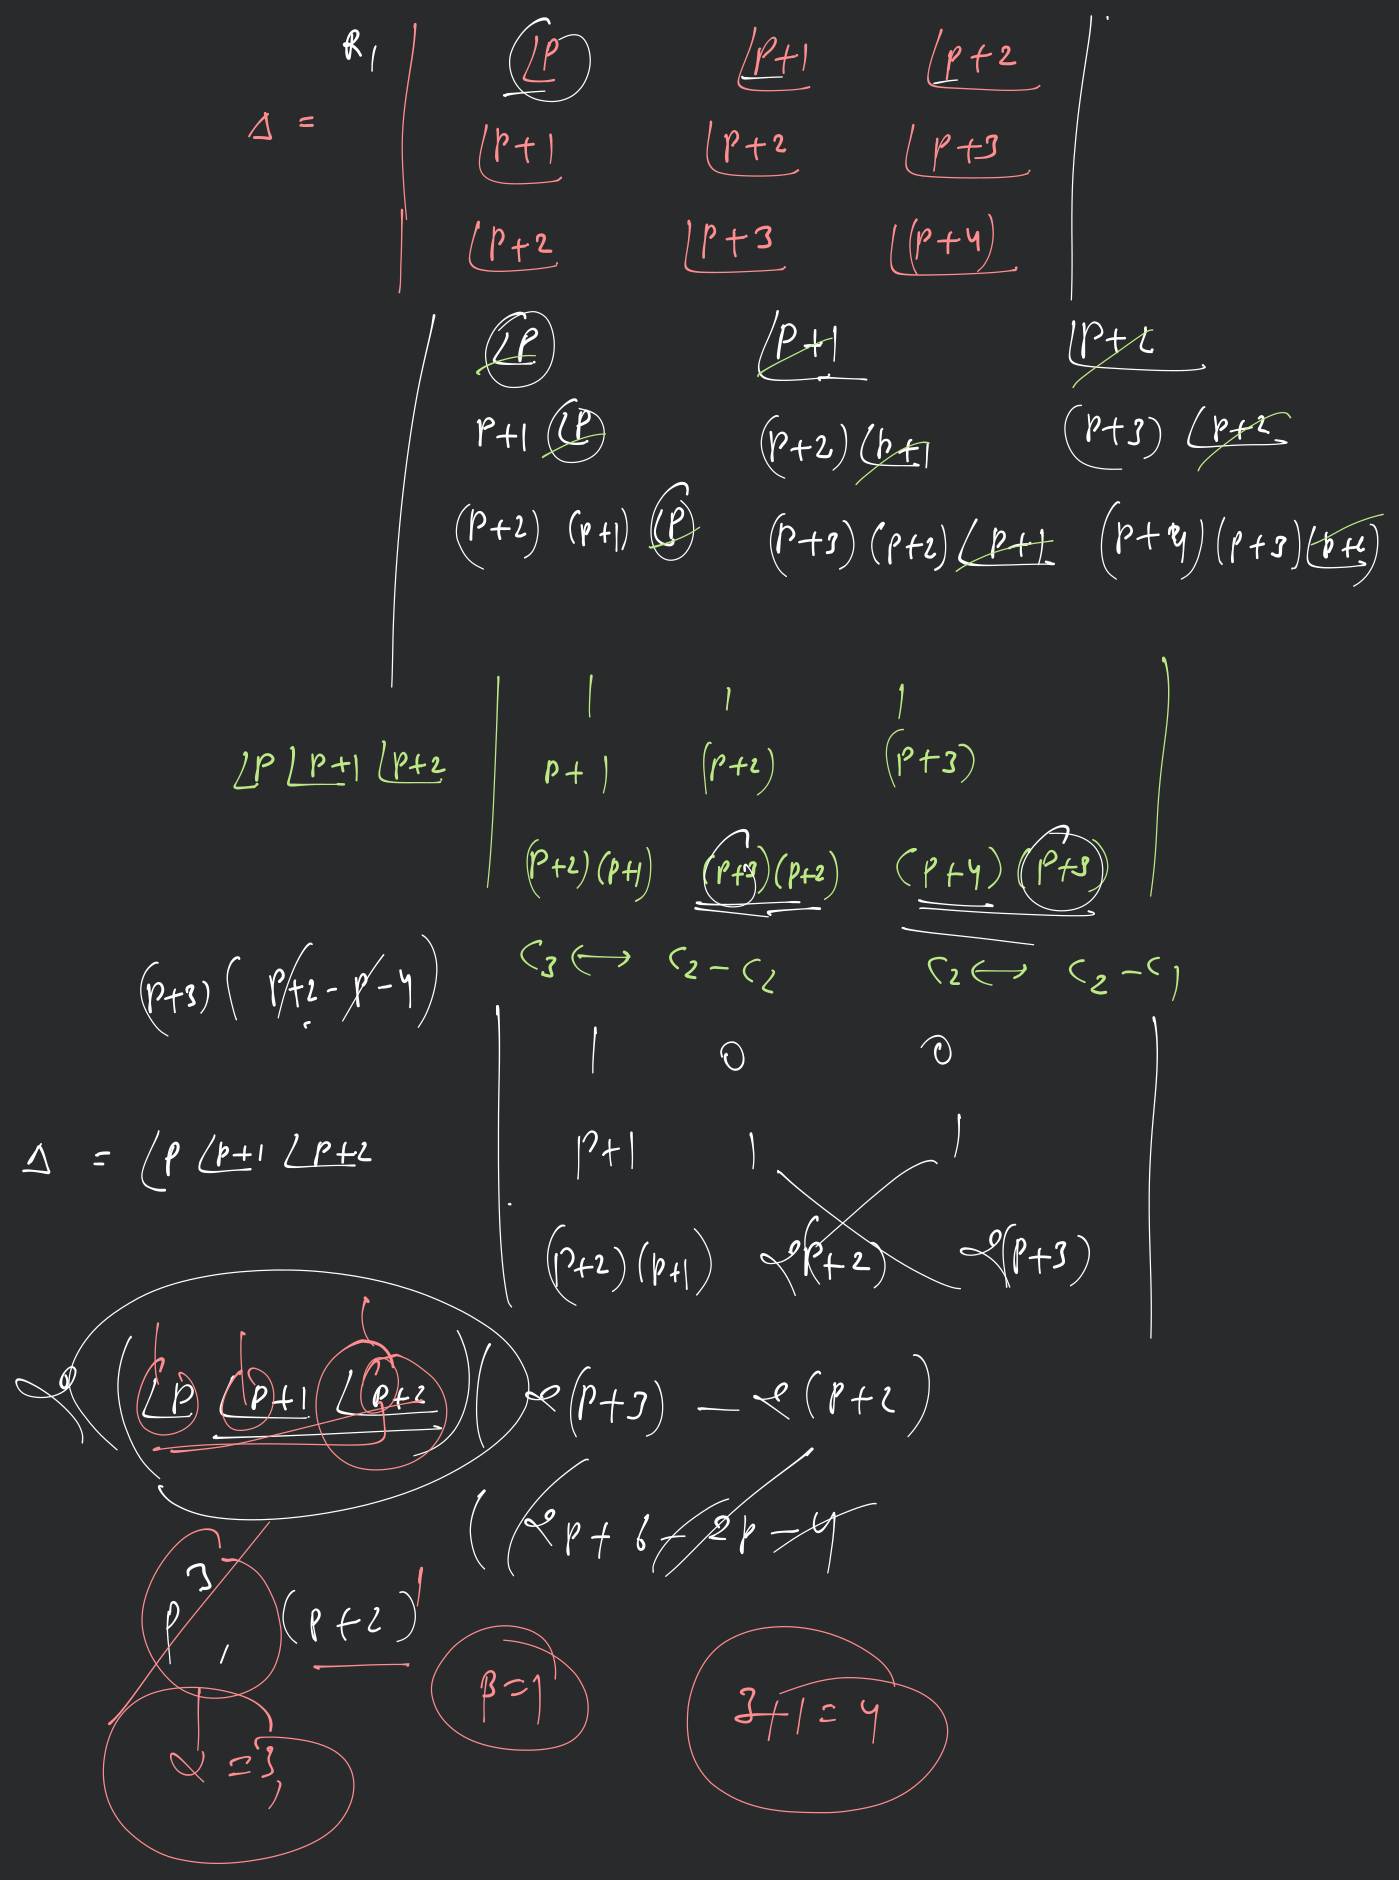 R₁
Δ =
∠p ∠p+1 ∠p+2
∠p+1 ∠p+2 ∠p+3
∠p+2 ∠p+3 ∠(p+4)
∠p ∠p+1 ∠p+2
p+1 ∠p (p+2) ∠p+1 (p+3) ∠p+2
(p+2) (p+1) ∠p (p+3) (p+2) ∠p+1 (p+4) (p+3) ∠p+2)
1 1 1
∠p ∠p+1 ∠p+2 p+1 (p+2) (p+3)
(p+2) (p+1) (p+3) (p+2) (p+4) (p+3)
C₃ ↔ C₂ - C₂ C₂ ↔ C₂ - C₁
(p+3) ( p+2 - p - 4)
1 0 0
Δ = ∠p ∠p+1 ∠p+2 p+1 1 1
(p+2) (p+1) 2(p+2) 2(p+3)
2 (∠p ∠p+1 ∠p+2) ( 2(p+3) - 2(p+2)
( (2p + 6 - 2p - 4
p³, (p+2)¹
β = 1
3+1 = 4
α = 3,